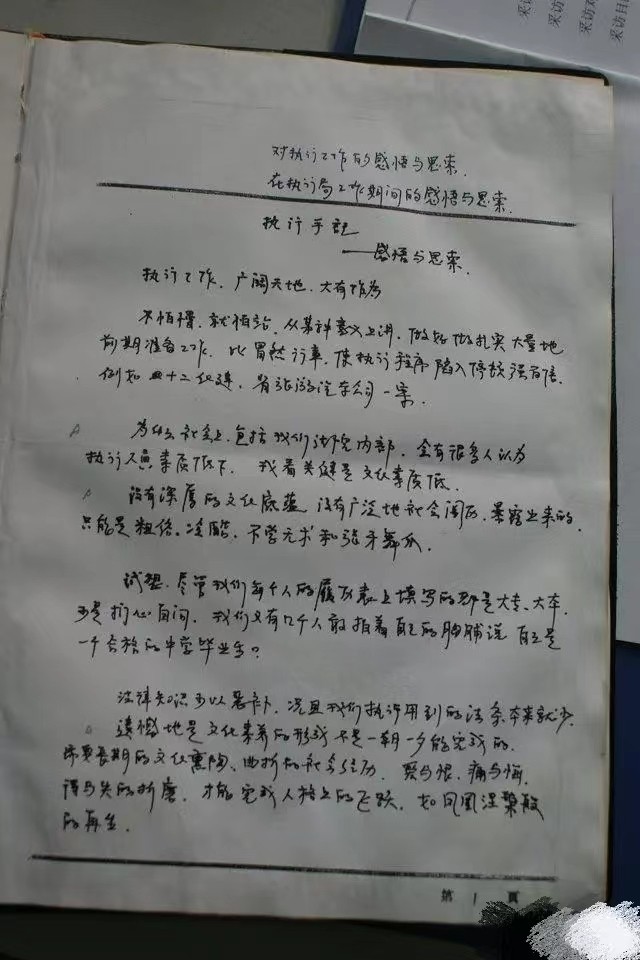 采访
采访对
采访目
对执行工作的感悟与思索.
在执行局工作期间的感悟与思索.
执行手记
——感悟与思索.
执行工作, 广阔天地, 大有作为
不怕慢, 就怕站, 从某种意义上讲, 做好做扎实大量地
前期准备工作, 比冒然行事, 使执行程序陷入停顿强百倍.
例如 二十二住建, 汽车公司一案.
为什么社会上, 包括我们法院内部, 会有很多人认为
执行人员素质低下. 我看关键是文化素质低.
没有深厚的文化底蕴 没有广泛地社会阅历, 暴露出来的,
只能是粗俗、冷酷, 不学无术和张牙舞爪.
试想, 尽管我们每个人的履历表上填写的都是大专、大本,
可是扪心自问, 我们又有几个人敢拍着自己的胸脯说 自己是
一个合格的中学毕业生?
法律知识可以恶补, 况且我们执行用到的法条本来就少.
遗憾地是文化素养的形成不是一朝一夕能完成的.
需要长期的文化熏陶、曲折的社会经历, 爱与恨, 痛与悔,
得与失的折磨, 才能完成人格上的飞跃, 如凤凰涅槃般
的再生.
第 1 頁